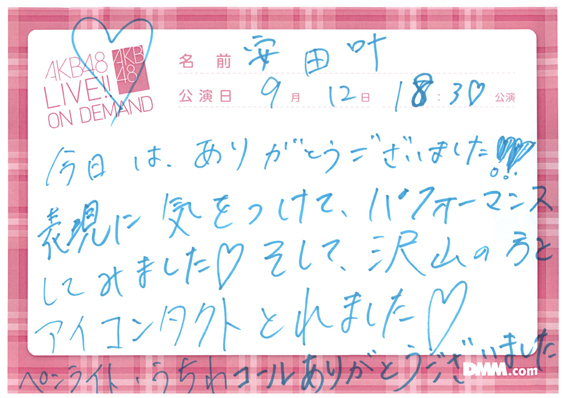 AKB48
LIVE!!
ON DEMAND
AKB
48
名前 安田叶
公演日 9月 12日 18:30公演
今日は、ありがとうございました!!!
表現に気をつけて、パフォーマンス
してみました♡そして、沢山の方と
アイコンタクトとれました♡
ペンライト・うちわコールありがとうございました
DMM.com